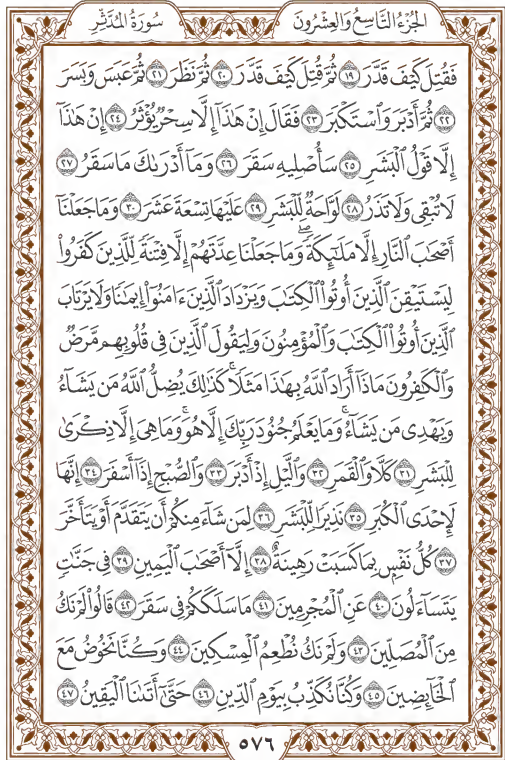 الجُزْءُ التَّاسِعُ وَالعِشْرُونَ
سُورَةُ المُدَّثِّرِ
فَقُتِلَ كَيْفَ قَدَّرَ ١٩ ثُمَّ قُتِلَ كَيْفَ قَدَّرَ ٢٠ ثُمَّ نَظَرَ ٢١ ثُمَّ عَبَسَ وَبَسَرَ
٢٢ ثُمَّ أَدْبَرَ وَٱسْتَكْبَرَ ٢٣ فَقَالَ إِنْ هَٰذَآ إِلَّا سِحْرٌ يُؤْثَرُ ٢٤ إِنْ هَٰذَآ
إِلَّا قَوْلُ ٱلْبَشَرِ ٢٥ سَأُصْلِيهِ سَقَرَ ٢٦ وَمَآ أَدْرَىٰكَ مَا سَقَرُ ٢٧
لَا تُبْقِى وَلَا تَذَرُ ٢٨ لَوَّاحَةٌ لِّلْبَشَرِ ٢٩ عَلَيْهَا تِسْعَةَ عَشَرَ ٣٠ وَمَا جَعَلْنَآ
أَصْحَٰبَ ٱلنَّارِ إِلَّا مَلَٰٓئِكَةً ۙ وَمَا جَعَلْنَا عِدَّتَهُمْ إِلَّا فِتْنَةً لِّلَّذِينَ كَفَرُوا۟
لِيَسْتَيْقِنَ ٱلَّذِينَ أُوتُوا۟ ٱلْكِتَٰبَ وَيَزْدَادَ ٱلَّذِينَ ءَامَنُوٓا۟ إِيمَٰنًا ۙ وَلَا يَرْتَابَ
ٱلَّذِينَ أُوتُوا۟ ٱلْكِتَٰبَ وَٱلْمُؤْمِنُونَ ۙ وَلِيَقُولَ ٱلَّذِينَ فِى قُلُوبِهِم مَّرَضٌ
وَٱلْكَٰفِرُونَ مَاذَآ أَرَادَ ٱللَّهُ بِهَٰذَا مَثَلًا ۚ كَذَٰلِكَ يُضِلُّ ٱللَّهُ مَن يَشَآءُ
وَيَهْدِى مَن يَشَآءُ ۚ وَمَا يَعْلَمُ جُنُودَ رَبِّكَ إِلَّا هُوَ ۚ وَمَا هِىَ إِلَّا ذِكْرَىٰ
لِلْبَشَرِ ٣١ كَلَّا وَٱلْقَمَرِ ٣٢ وَٱلَّيْلِ إِذْ أَدْبَرَ ٣٣ وَٱلصُّبْحِ إِذَآ أَسْفَرَ ٣٤ إِنَّهَا
لَإِحْدَى ٱلْكُبَرِ ٣٥ نَذِيرًا لِّلْبَشَرِ ٣٦ لِمَن شَآءَ مِنكُمْ أَن يَتَقَدَّمَ أَوْ يَتَأَخَّرَ
٣٧ كُلُّ نَفْسٍۭ بِمَا كَسَبَتْ رَهِينَةٌ ٣٨ إِلَّآ أَصْحَٰبَ ٱلْيَمِينِ ٣٩ فِى جَنَّٰتٍ
يَتَسَآءَلُونَ ٤٠ عَنِ ٱلْمُجْرِمِينَ ٤١ مَا سَلَكَكُمْ فِى سَقَرَ ٤٢ قَالُوا۟ لَمْ نَكُ
مِنَ ٱلْمُصَلِّينَ ٤٣ وَلَمْ نَكُ نُطْعِمُ ٱلْمِسْكِينَ ٤٤ وَكُنَّا نَخُوضُ مَعَ
ٱلْخَآئِضِينَ ٤٥ وَكُنَّا نُكَذِّبُ بِيَوْمِ ٱلدِّينِ ٤٦ حَتَّىٰٓ أَتَىٰنَا ٱلْيَقِينُ ٤٧
٥٧٦